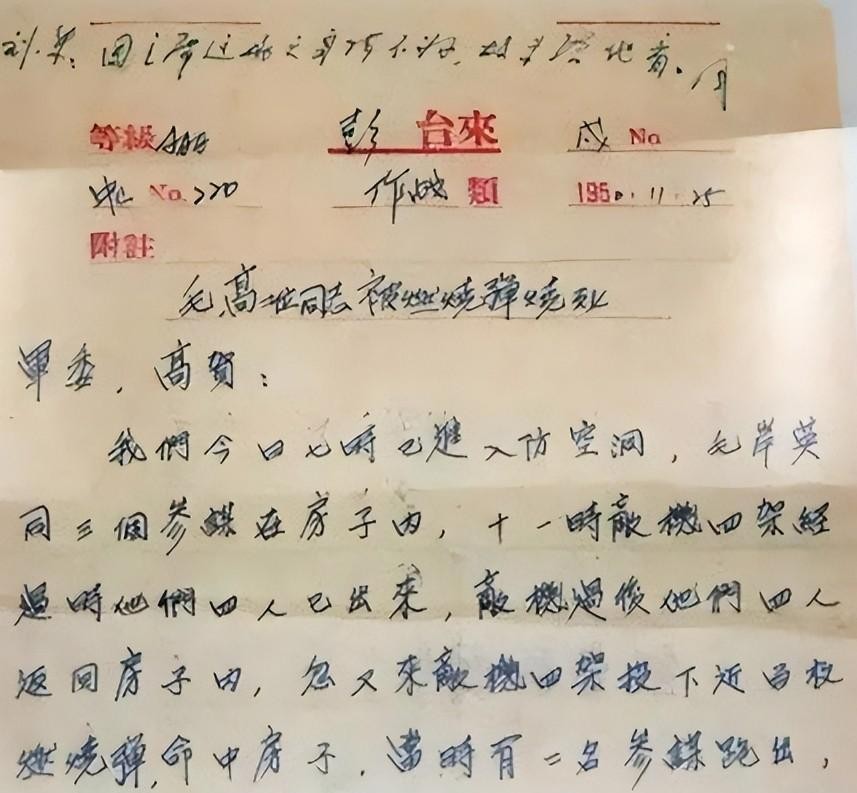 刘、
等級 AAA 彭 台來 戍 No
No. 220 作战 類 1950.11.25
附註
毛、高二位同志被燃燒彈燒死
軍委，高賀：
我們今日七時已進入防空洞，毛岸英
同三個參謀在房子内，十一時敵機四架經
過時他們四人已出來，敵機過後他們四人
返回房子内，忽又來敵機四架投下近百枚
燃燒彈，命中房子，當時有二名參謀跑出，